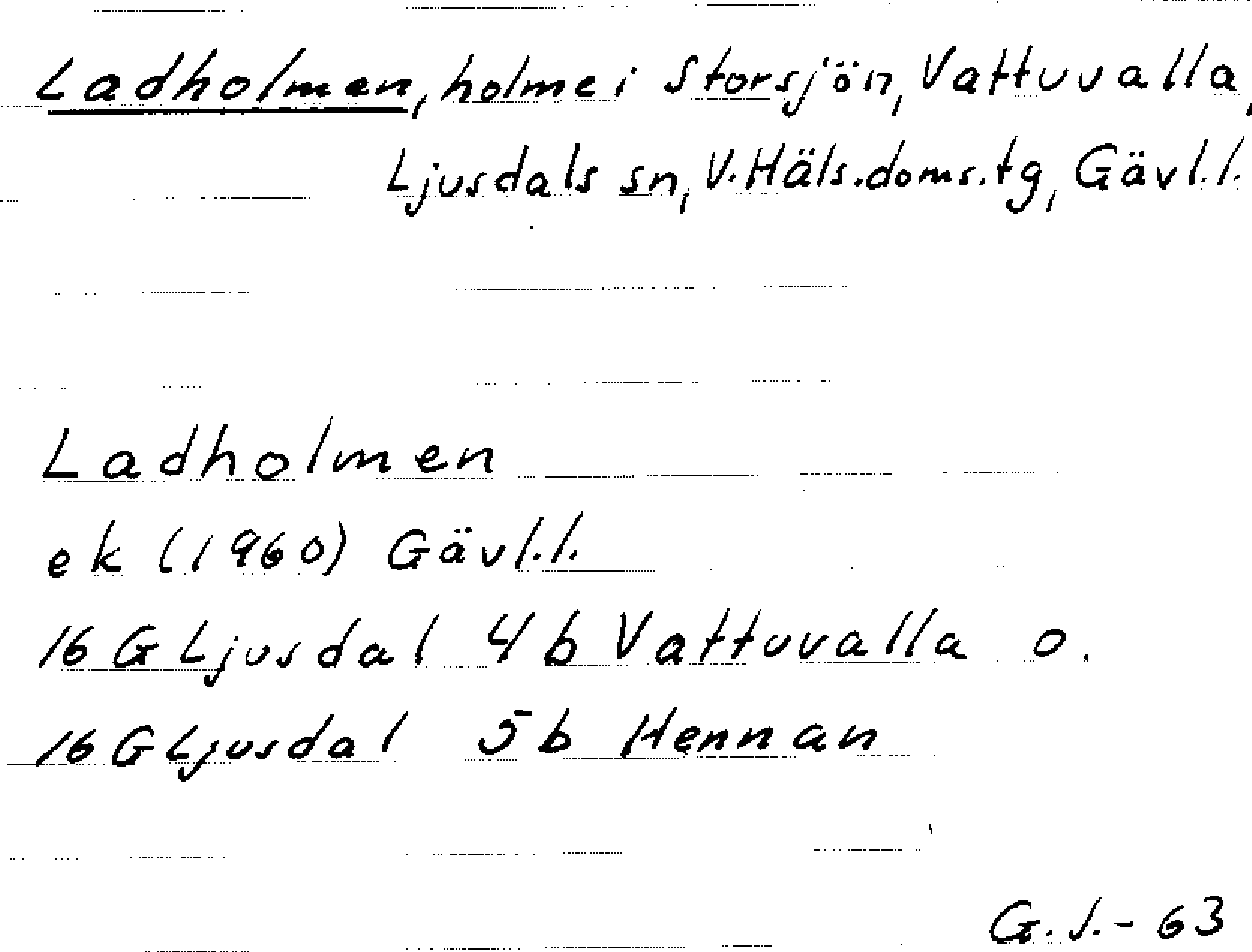 Ladholmen, holme i Storsjön, Vattuvalla,
Ljusdals sn, V. Häls.doms.tg, Gävl.l.
Ladholmen
ek (1960) Gävl.l.
16 G Ljusdal 4 b Vattuvalla o.
16 G Ljusdal 5 b Hennan
G.J.-63